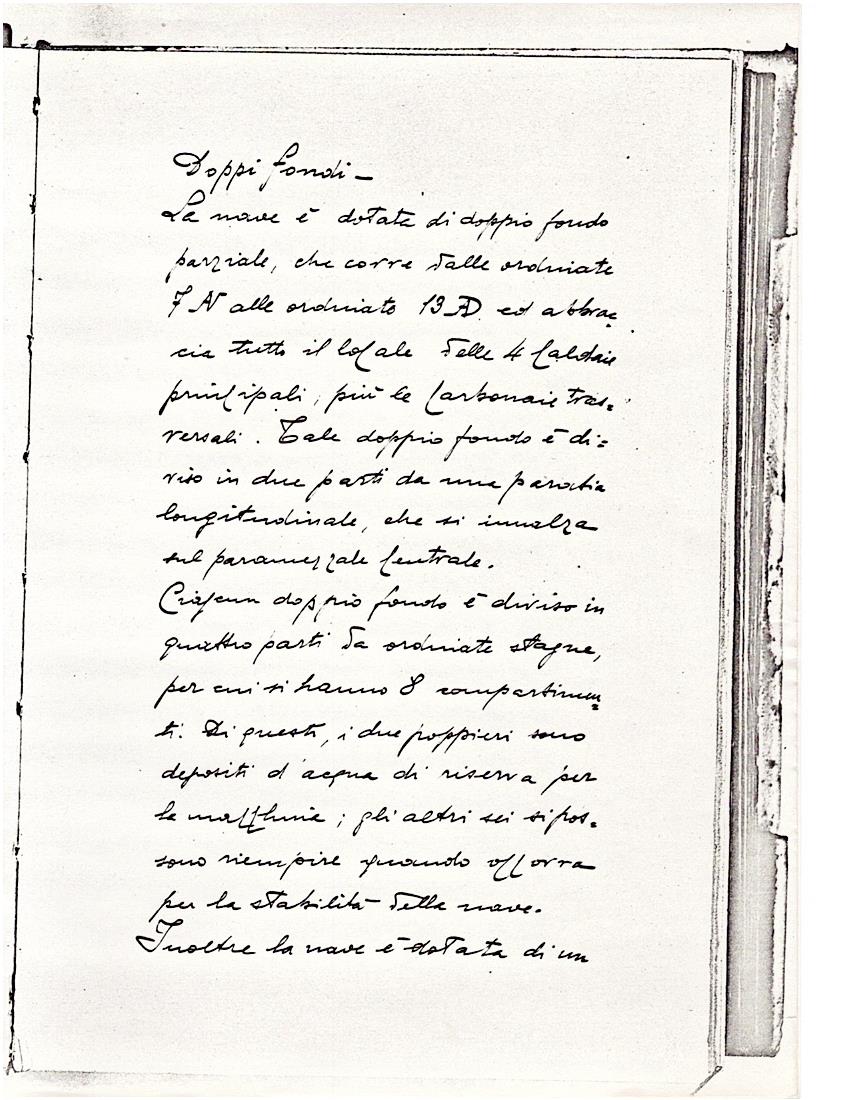 Doppi fondi -
La nave è dotata di doppio fondo
parziale, che corre dalle ordinate
7 AV alle ordinate 13 AD. ed abbrac=
cia tutto il locale delle 4 Caldaie
principali, più le Carbonaie tras=
versali. Tale doppio fondo è di=
viso in due parti da una paratia
longitudinale, che si innalza
sul paramezzale Centrale.
Ciascun doppio fondo è diviso in
quattro parti da ordinate stagne,
per cui si hanno 8 compartimen=
ti. Di questi, i due poppieri sono
depositi d'acqua di riserva per
la macchina; gli altri sei si pos=
sono riempire quando occorra
per la stabilità della nave.
Inoltre la nave è dotata di un